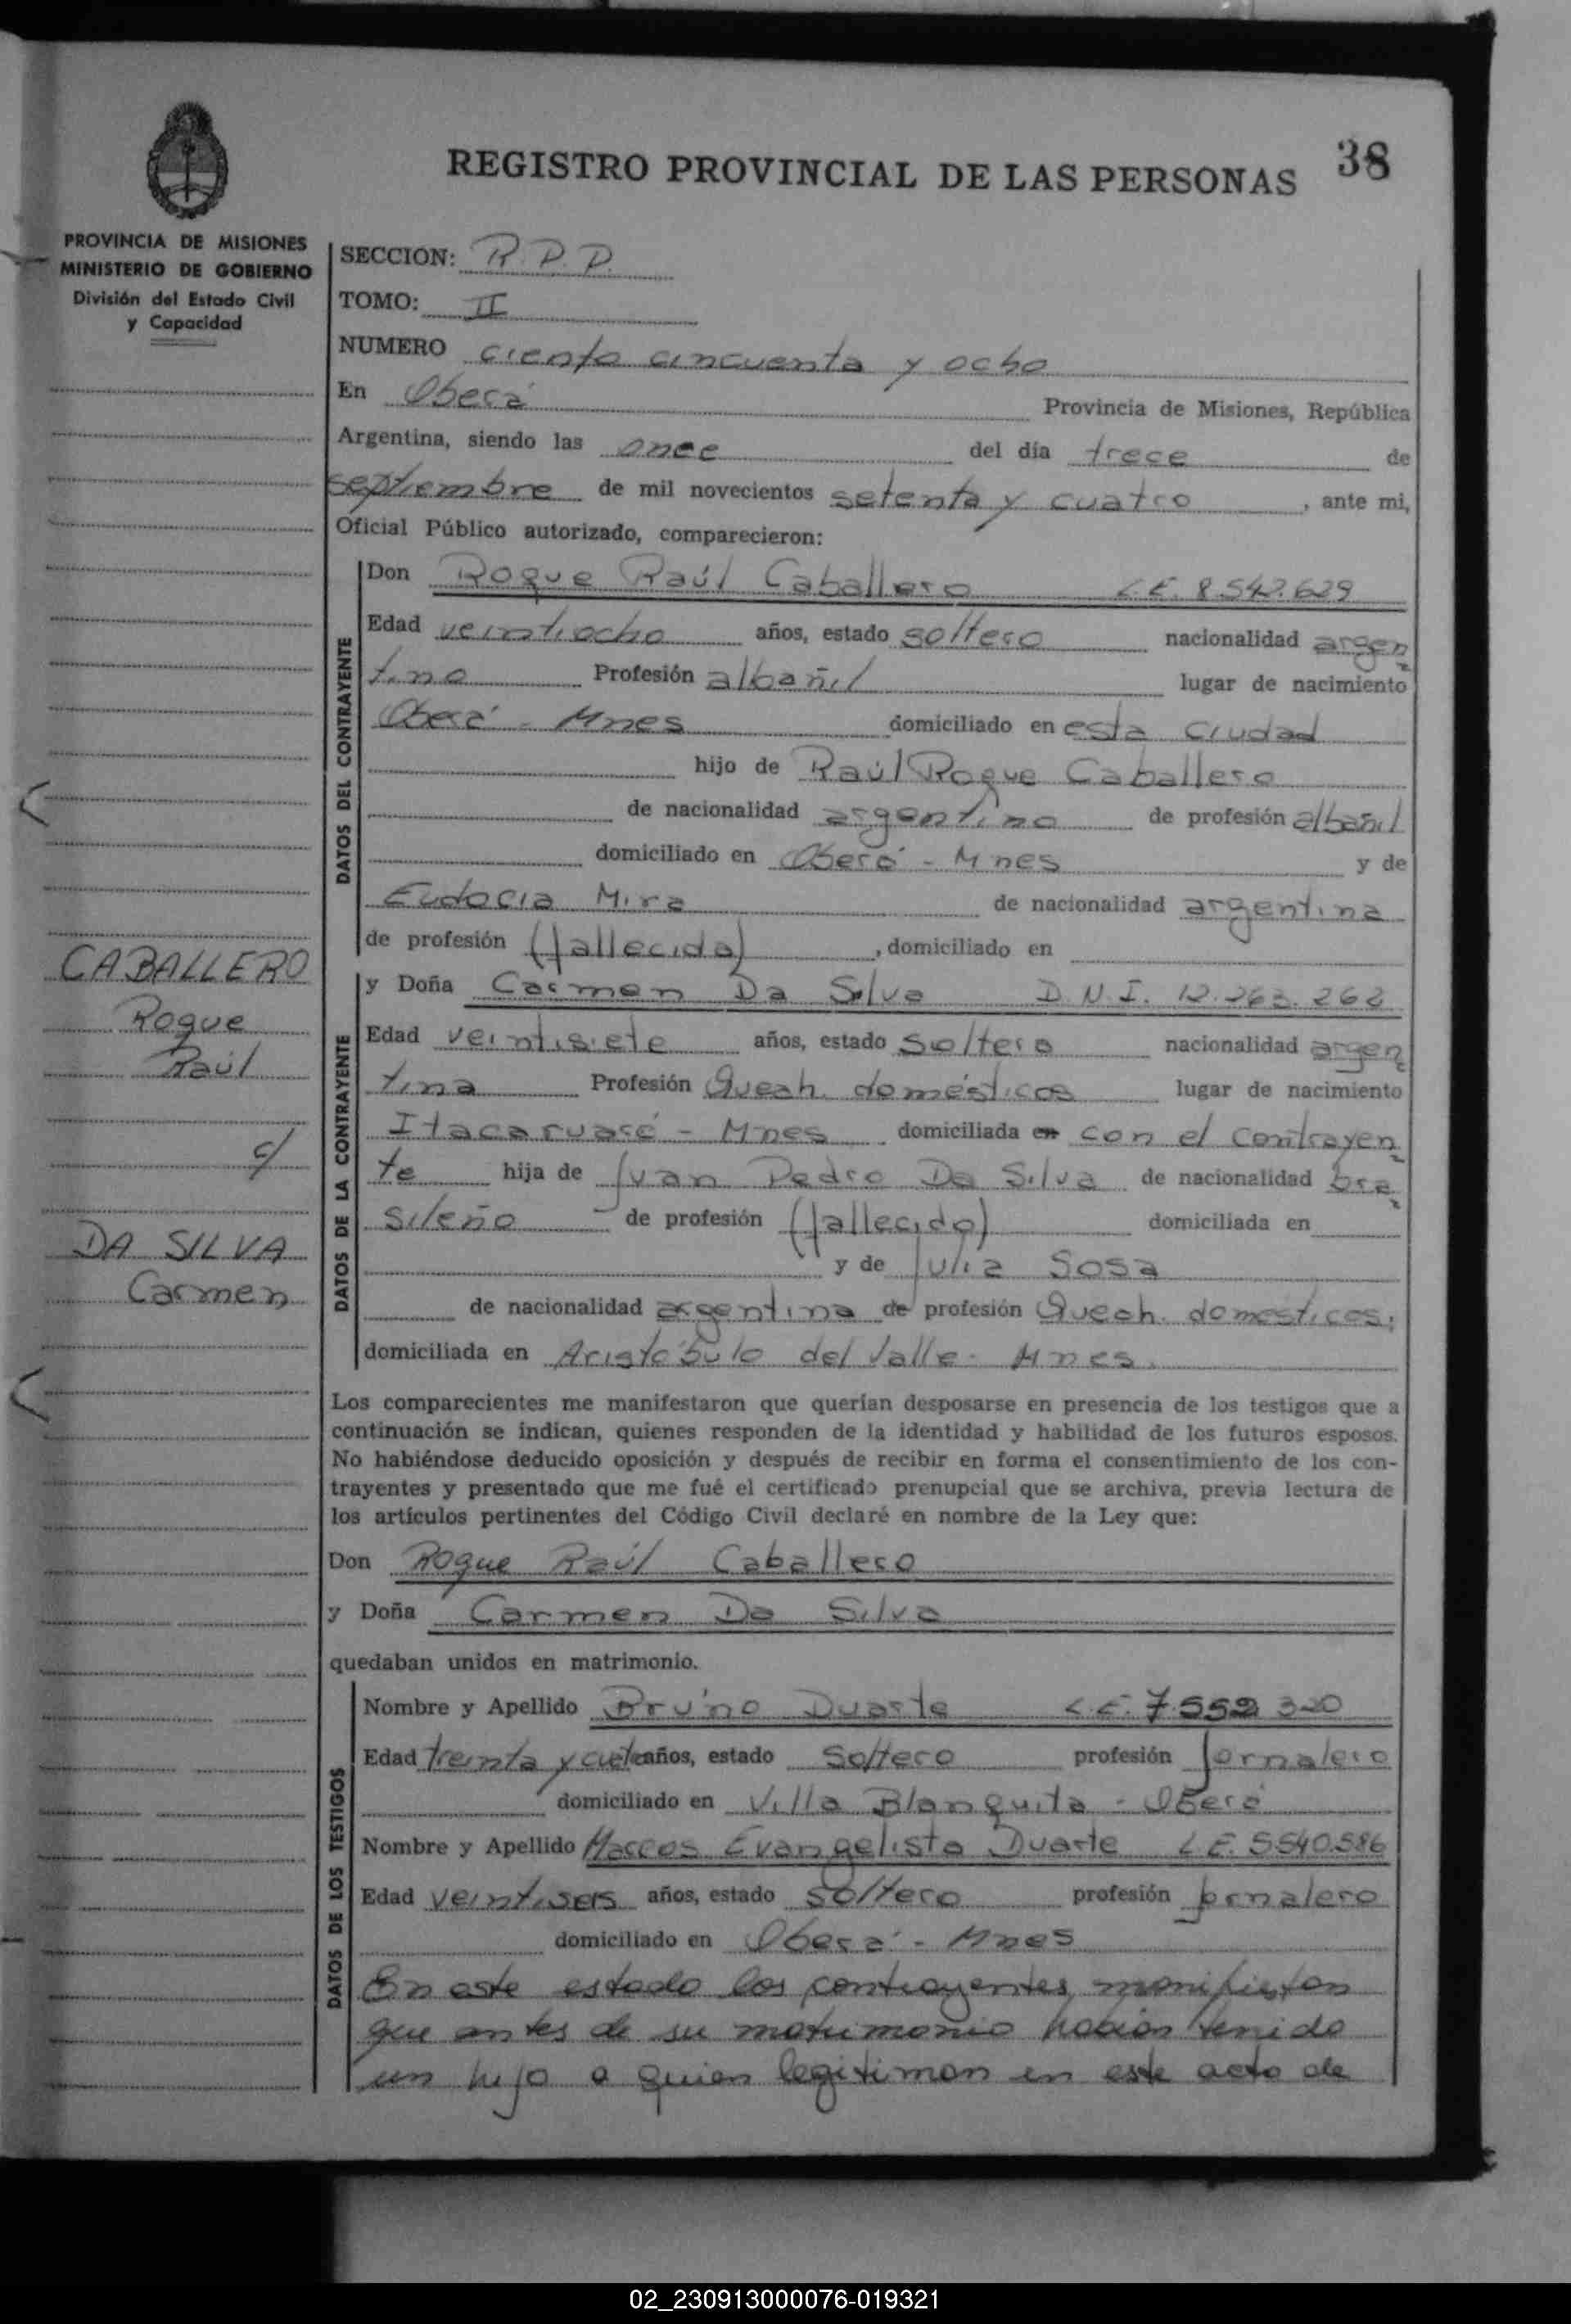 REGISTRO PROVINCIAL DE LAS PERSONAS 38
PROVINCIA DE MISIONES
MINISTERIO DE GOBIERNO
División del Estado Civil
y Capacidad
SECCION: R.P.P.
TOMO: II
NUMERO ciento cincuenta y ocho
En Oberá Provincia de Misiones, República
Argentina, siendo las once del día trece de
septiembre de mil novecientos setenta y cuatro, ante mi,
Oficial Público autorizado, comparecieron:
DATOS DEL CONTRAYENTE
Don Roque Raúl Caballero L.E. 8.542.629
Edad veintiocho años, estado soltero nacionalidad argen
tino Profesión albañil lugar de nacimiento
Oberá - Mnes domiciliado en esta ciudad
hijo de Raúl Roque Caballero
de nacionalidad argentino de profesión albañil
domiciliado en Oberá - Mnes y de
Eudocia Mira de nacionalidad argentina
de profesión (fallecida), domiciliado en
CABALLERO
Roque
Raúl
c/
DA SILVA
Carmen
DATOS DE LA CONTRAYENTE
y Doña Carmen Da Silva D.N.I. 12.263.262
Edad veintisiete años, estado soltera nacionalidad argen
tina Profesión Queah. domésticos lugar de nacimiento
Itacaruaré - Mnes domiciliada en con el contrayen
te hija de Juan Pedro Da Silva de nacionalidad bra
sileño de profesión (fallecido) domiciliada en
y de Julia Sosa
de nacionalidad argentina de profesión Queah. domesticos;
domiciliada en Aristóbulo del Valle - Mnes.
Los comparecientes me manifestaron que querían desposarse en presencia de los testigos que a
continuación se indican, quienes responden de la identidad y habilidad de los futuros esposos.
No habiéndose deducido oposición y después de recibir en forma el consentimiento de los con-
trayentes y presentado que me fué el certificado prenupcial que se archiva, previa lectura de
los artículos pertinentes del Código Civil declaré en nombre de la Ley que:
Don Roque Raúl Caballero
y Doña Carmen Da Silva
quedaban unidos en matrimonio.
DATOS DE LOS TESTIGOS
Nombre y Apellido Bruno Duarte L.E. 7.552 320
Edad treinta y años, estado soltero profesión jornalero
domiciliado en Villa Blanquita - Oberá
Nombre y Apellido Marcos Evangelista Duarte L.E. 5.540.586
Edad veintiseis años, estado soltero profesión jornalero
domiciliado en Oberá - Mnes
En este estado los contrayentes manifiestan
que antes de su matrimonio habian tenido
un hijo a quien legitiman en este acto de
02_230913000076-019321